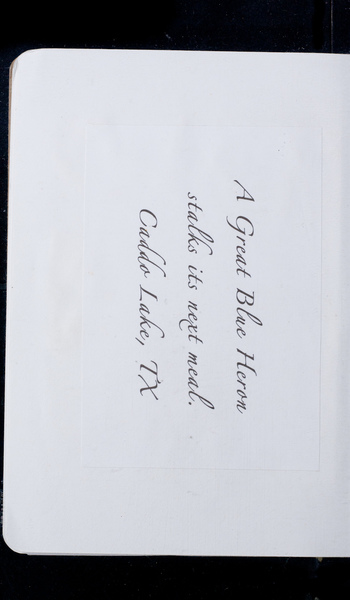 A Great Blue Heron
stalks its next meal.
Caddo Lake, TX